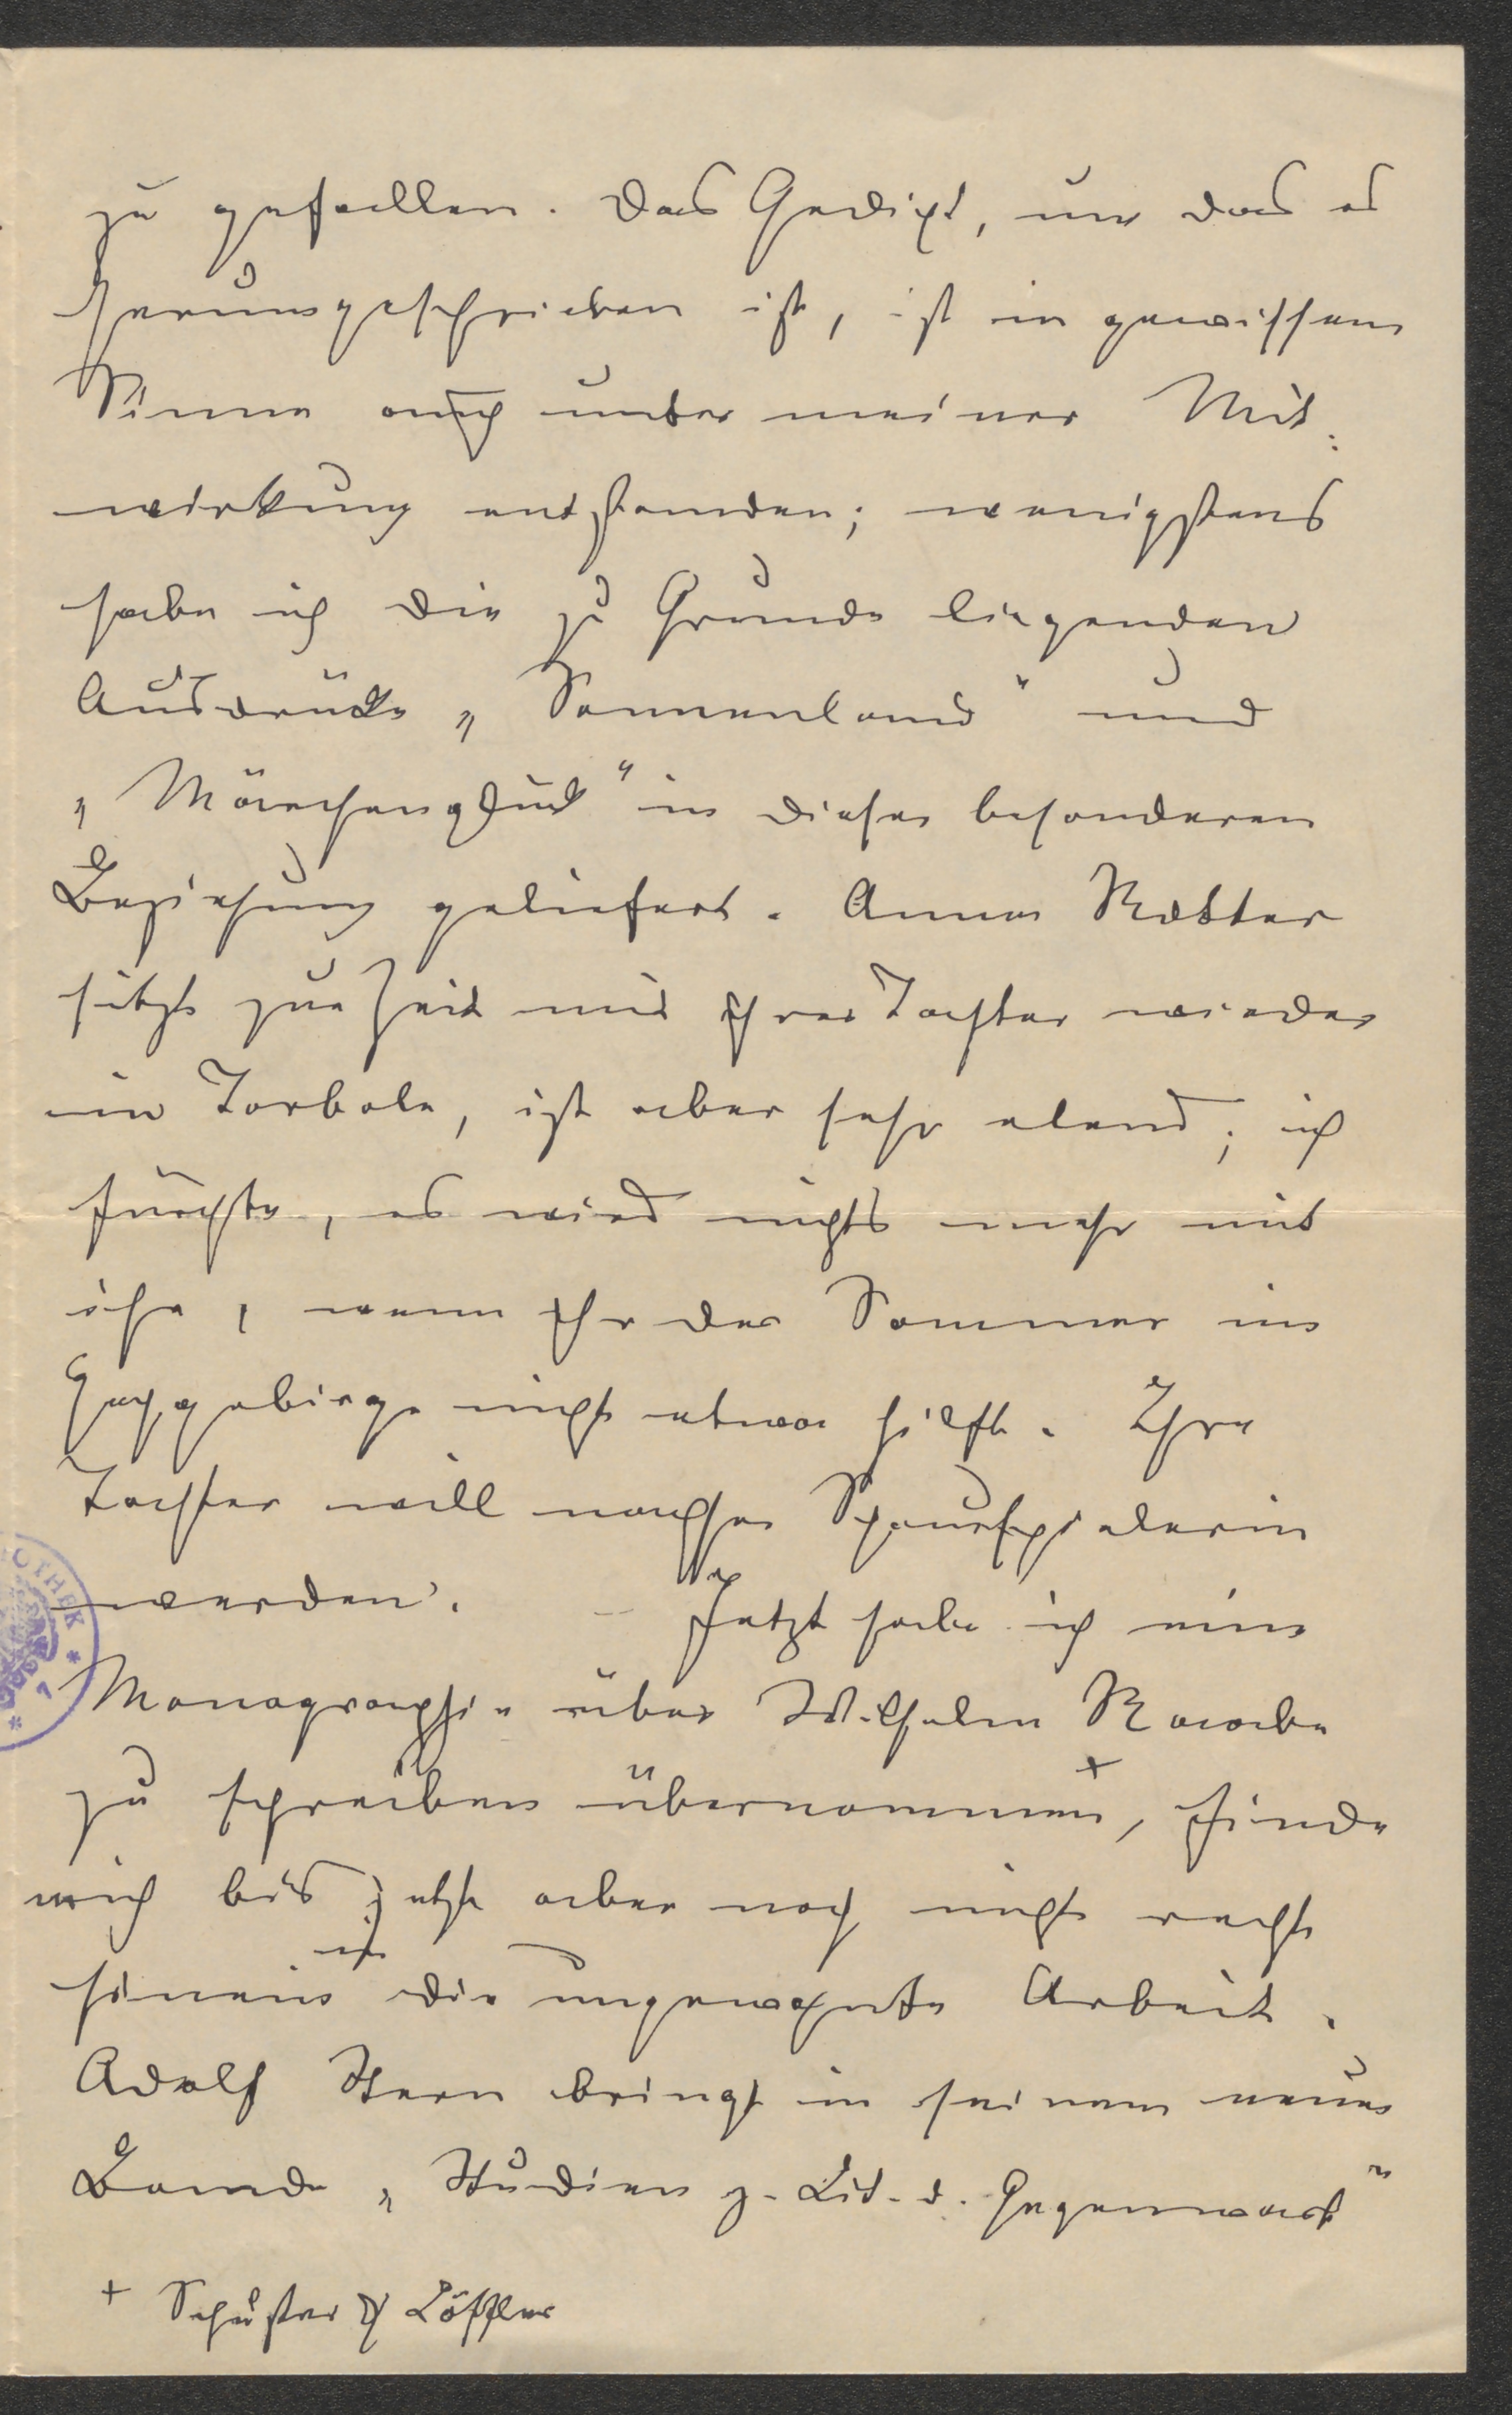 zu gefallen. Das Gedicht, um das es
herumgeschrieben ist, ist in gewissem
Sinne auch unter meiner Mit:
wirkung entstanden; wenigstens
habe ich die zu Grunde liegenden
Ausdrücke „Sonnenland" und
„Märchenglück" in dieser besonderen
Beziehung geliefert. Anna Ritter
sitzt zur Zeit mit ihrer Tochter wieder
in Torbole, ist aber sehr elend; ich
fürchte, es wird nichts mehr mit
ihr, wenn ihr der Sommer im
Hochgebirge nicht etwa hilft. Ihre
Tochter will nachher Schauspielerin
werden. – Jetzt habe ich eine
Monographie über Wilhelm Raabe
zu schreiben übernommen +, finde
mich bis jetzt aber noch nicht recht
hinein in die ungewohnte Arbeit.
Adolf Stern bringt in seinem neuen
Bande „Studien z. Lit. d. Gegenwart"
+ Schuster & Löffler
OTHEK